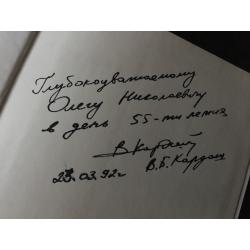 Глубокоуважаемому
Олегу Николаевичу
в день 55-ти летия
23.03.92г. В.Б. Кардаш